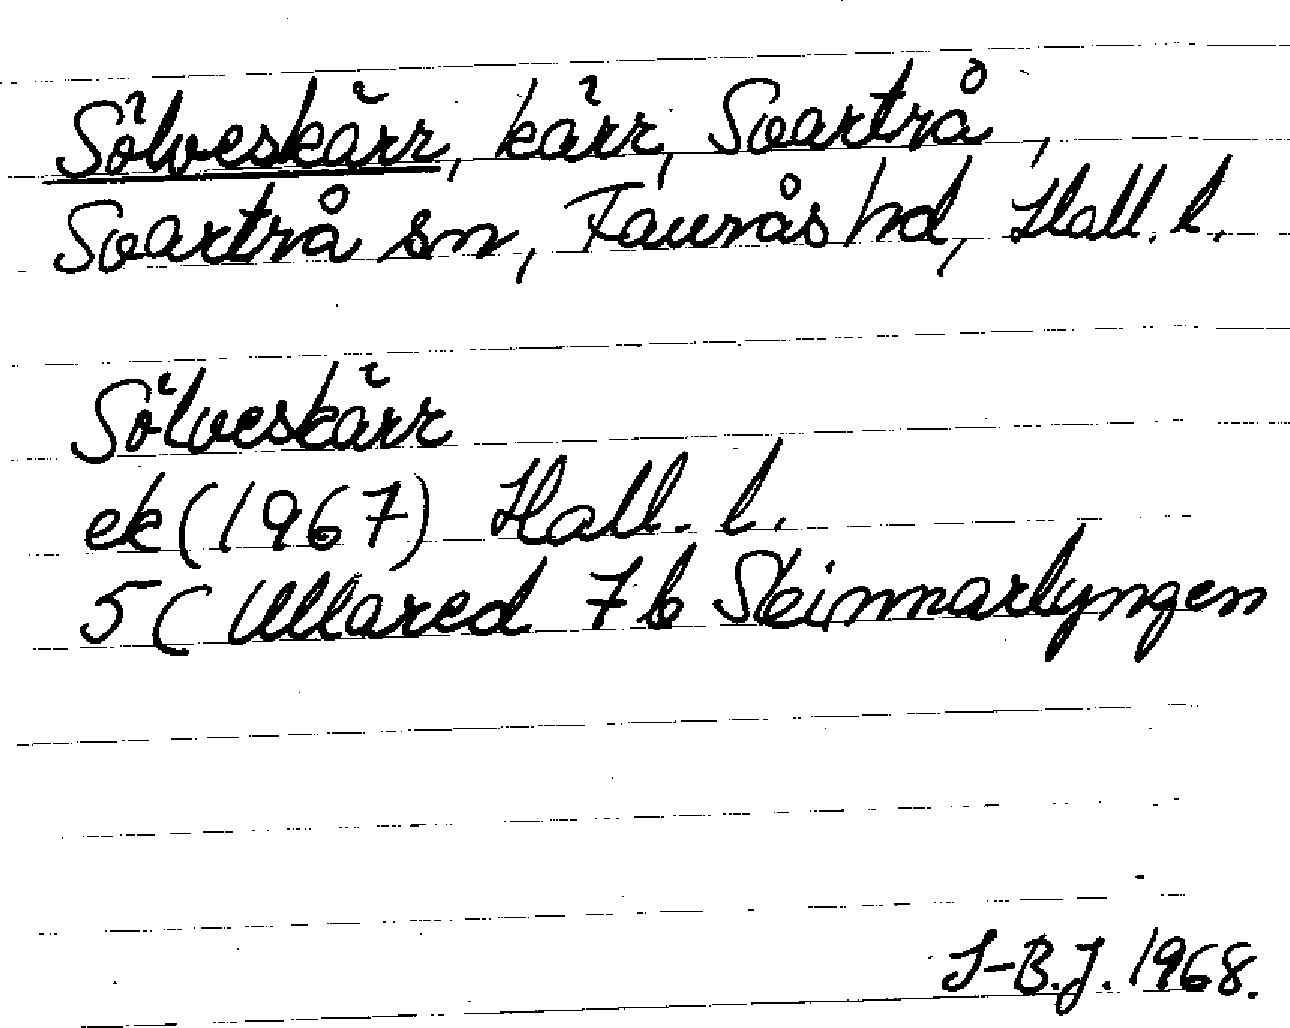 Sölveskärr, kärr, Svartrå,
Svartrå sn, Faurås hd, Hall. l.
Sölveskärr
ek (1967) Hall. l.
5C Ullared 7b Skinnarlyngen
I-B.J. 1968.